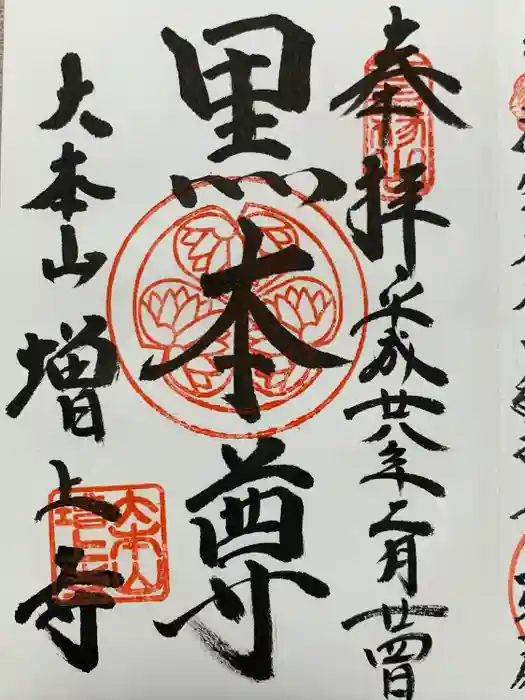 奉拝 平成廿八年二月廿四日
黒本尊
大本山 増上寺
大本山
増上寺